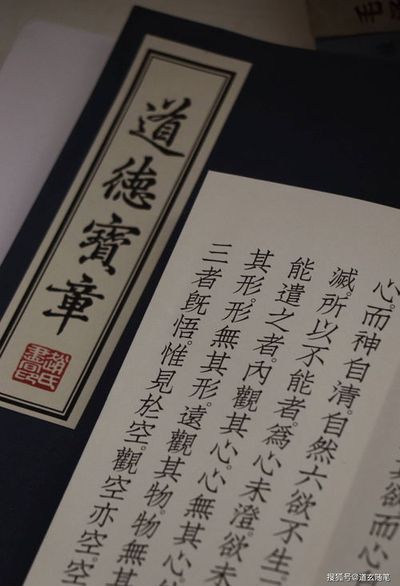 道德寶章
其欲而心
心。而神自清。自然六欲不生。三
滅。所以不能者。爲心未澄。欲未
能遣之者。內觀其心。心無其
其形。形無其形。遠觀其物。物無
三者既悟。惟見於空。觀空亦空。
搜狐号@道玄随笔